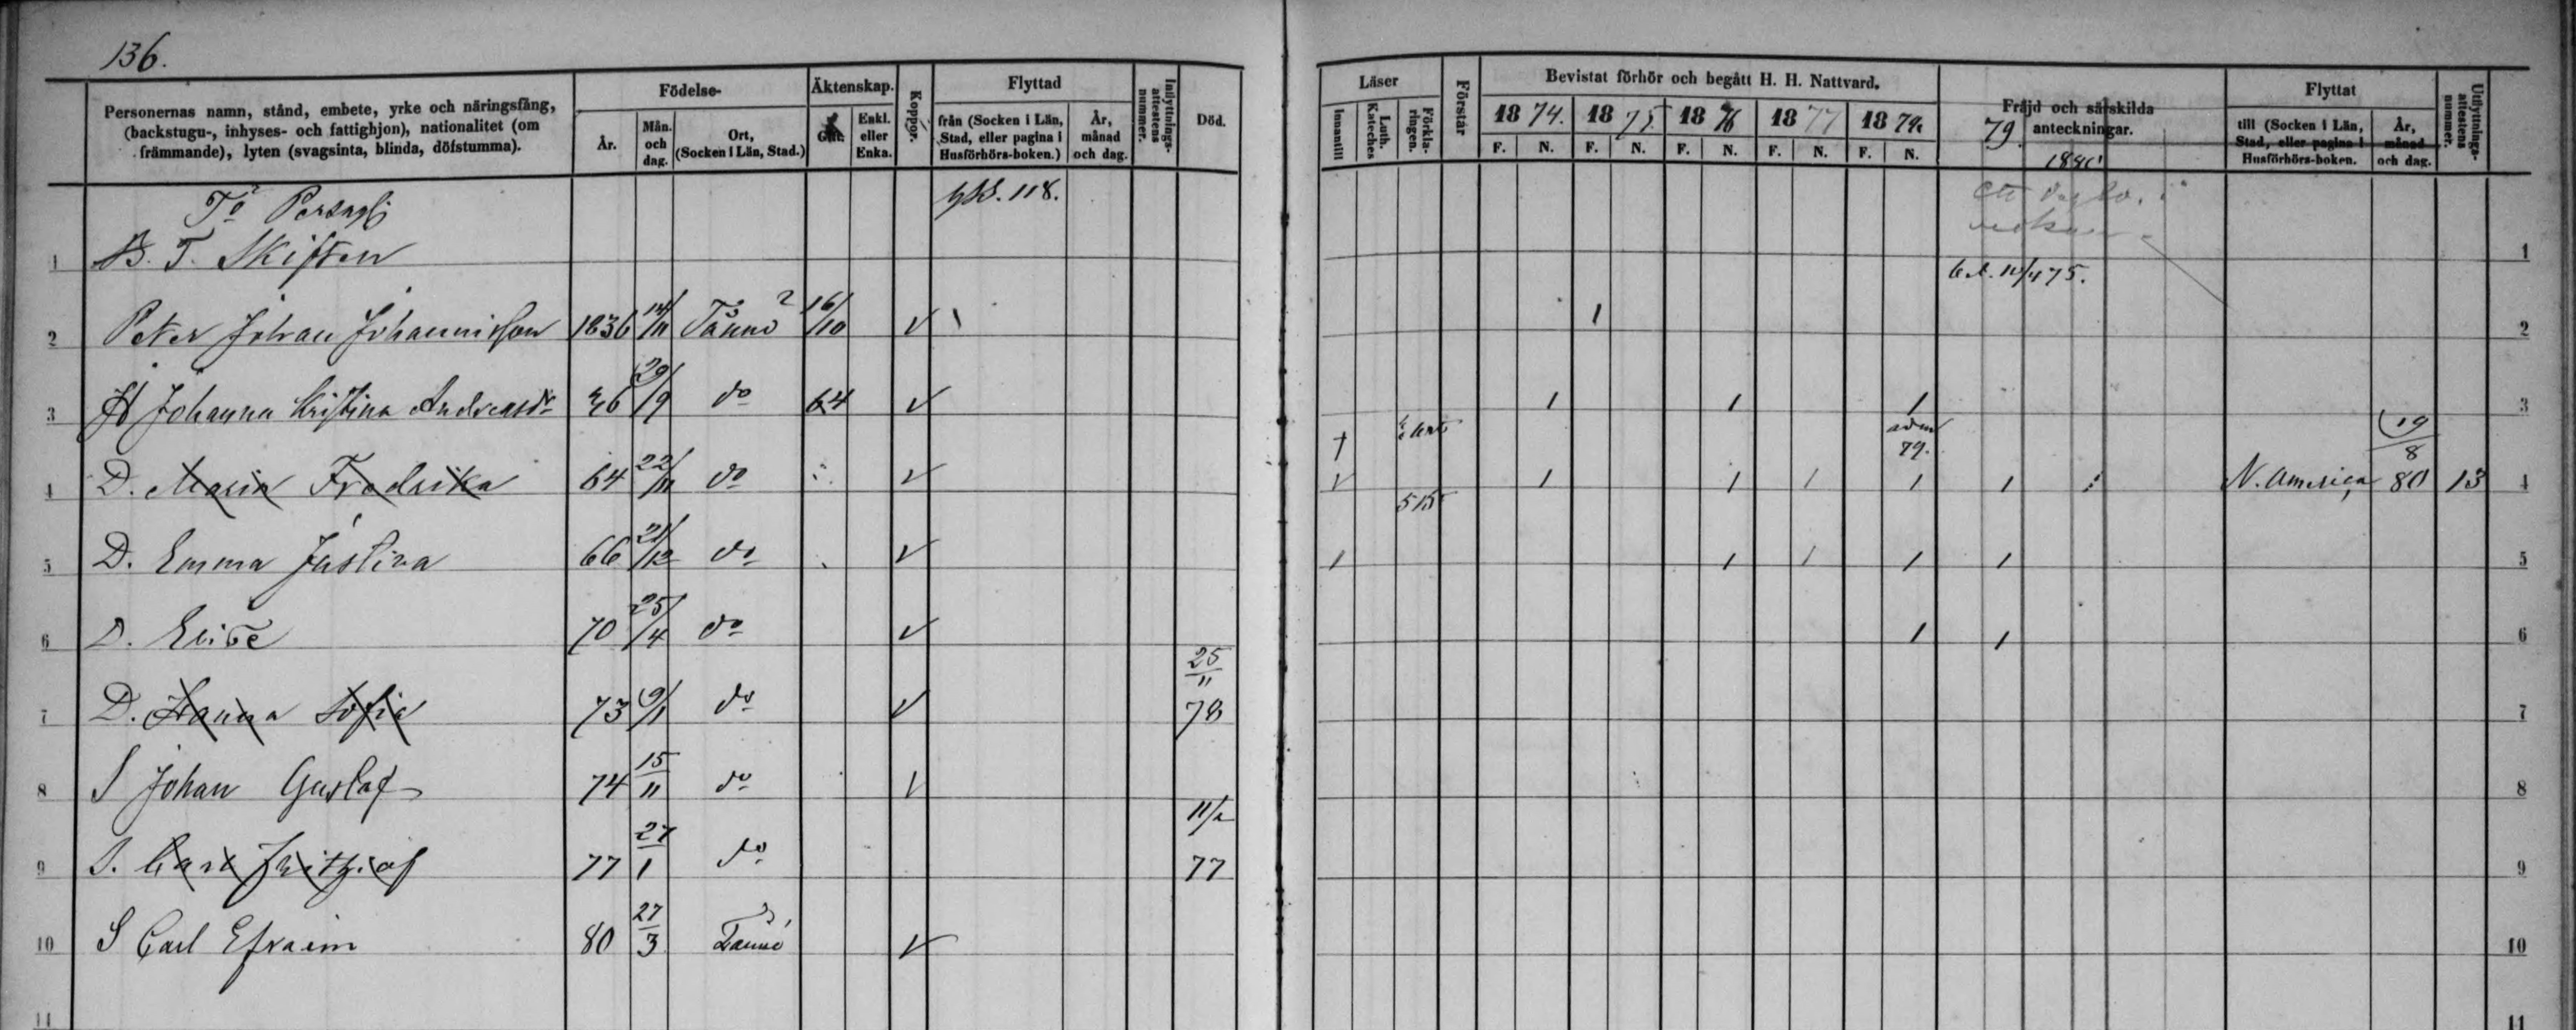 136.
Personernas namn, stånd, embete, yrke och näringsfång, (backstugu-, inhyses- och fattighjon), nationalitet (om främmande), lyten (svagsinta, blinda, döfstumma).
Födelse-
År.
Mån. och dag.
Ort, (Socken i Län, Stad.)
Äktenskap.
Gift.
Enkl. eller Enka.
Koppor.
Flyttad
från (Socken i Län, Stad, eller pagina i Husförhörs-boken.)
År, månad och dag.
Inflyttnings-attestens nummer.
Död.
Läser
Innantill
Luth. Kateches
Förkla-ringen.
Förstår
Bevistat förhör och begått H. H. Nattvard.
1874. 1875 1876 1877 1879.
F. N. F. N. F. N. F. N. F. N.
Fräjd och särskilda anteckningar.
79. 1880
Flyttat
till (Socken i Län, Stad, eller pagina i Husförhörs-boken.
År, månad och dag.
Utflyttnings-attestens nummer.
118.
1 B. T. Skiften 1
2 Peter Johan Johannisson 1836 14/11 Tånnö 16/10 2
3 H Johanna Kristina Andreasdr 36 29/9 do 64 3
4 D. Maria Fredrika 64 22/11 do adm 79. N. America 19/8 80 13 4
5 D. Emma Justina 66 21/12 do 5
6 D. Elise 70 25/4 do 6
7 D. Hanna Sofia 73 9/1 do 25/11 78 7
8 S Johan Gustaf 74 15/11 do 8
9 S. Carl Frithiof 77 27/1 do 11/2 77 9
10 S Carl Efraim 80 27/3 Tånnö 10
11 11